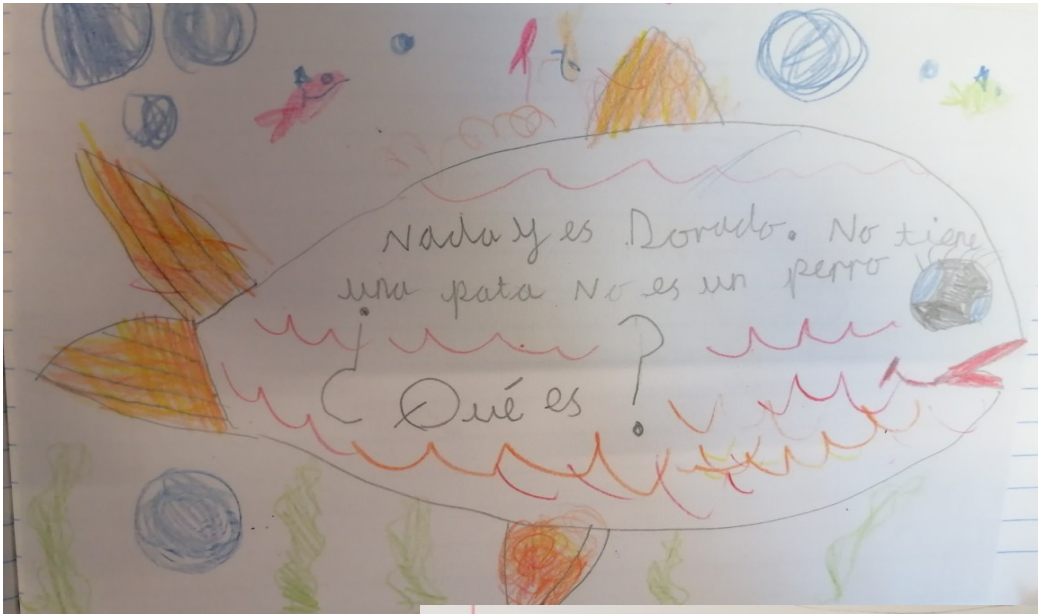 Nada y es Dorado. No tiene
una pata No es un perro
¿Qué es?